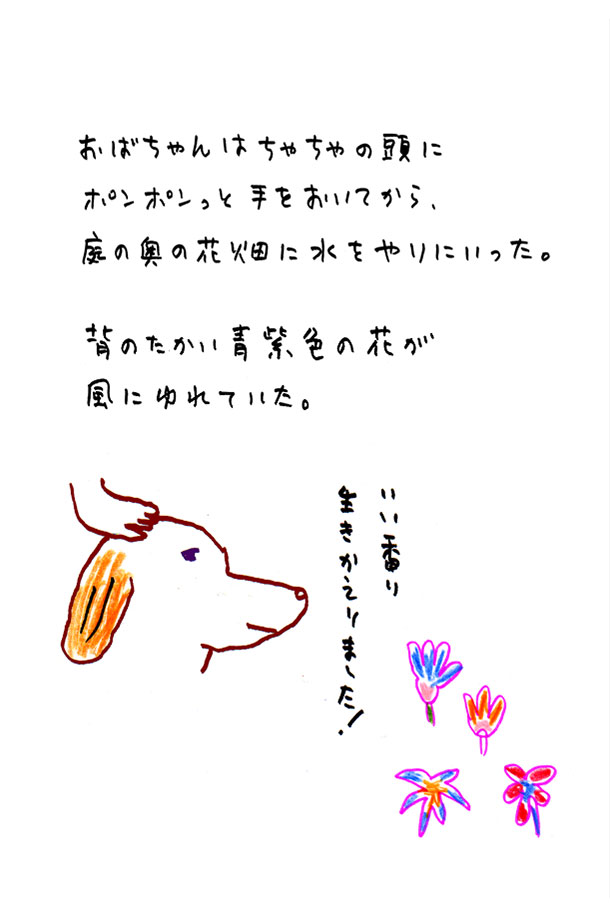 おばちゃんはちゃちゃの頭に
ポンポンっと手をおいてから、
庭の奥の花畑に水をやりにいった。
背のたかい青紫色の花が
風にゆれていた。
いい香り
生きかえりました!